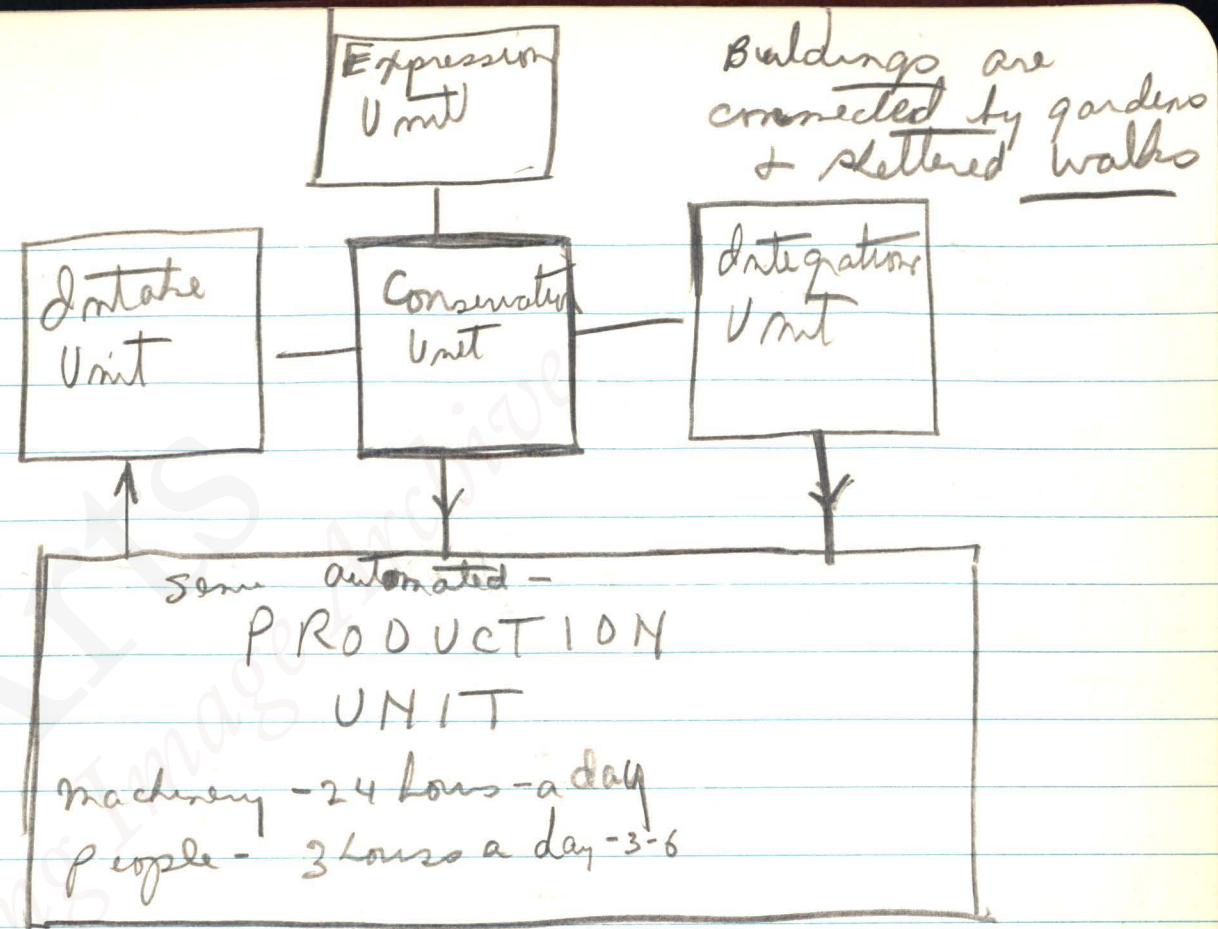 Expression
Unit
Buildings are
connected by gardens
& sheltered walks
Intake
Unit
Conservation
Unit
Integration
Unit
semi automated -
PRODUCTION
UNIT
machinery - 24 hours - a day
people - 3 hours a day - 3-6
arts
ng Image Archive